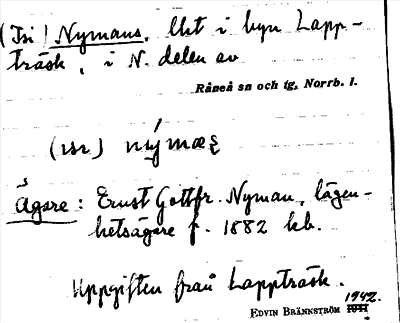 (Tri) Nymans, lht i byn Lapp-
träsk, i N. delen av
Råneå sn och tg, Norrb. l.
(isr) nýmæʂ
Ägare: Ernst Gottfr. Nyman, lägen-
hetsägare f. 1882 kb.
Uppgiften från Lappträsk.
1942.
EDVIN BRÄNNSTRÖM